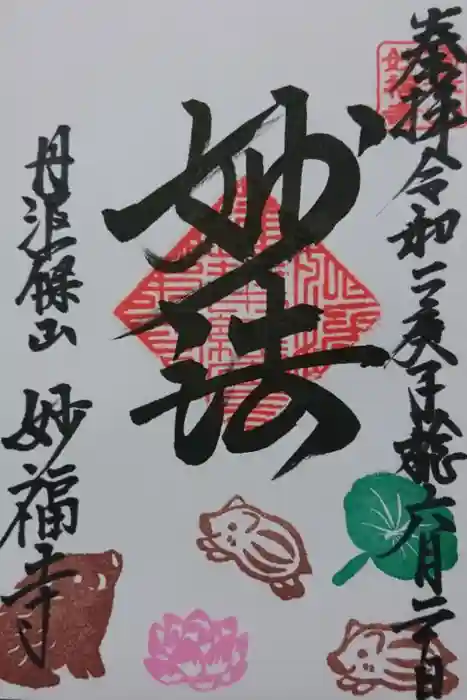 奉拝令和二庚子龍六月二十日
妙法
丹波保山
妙福寺